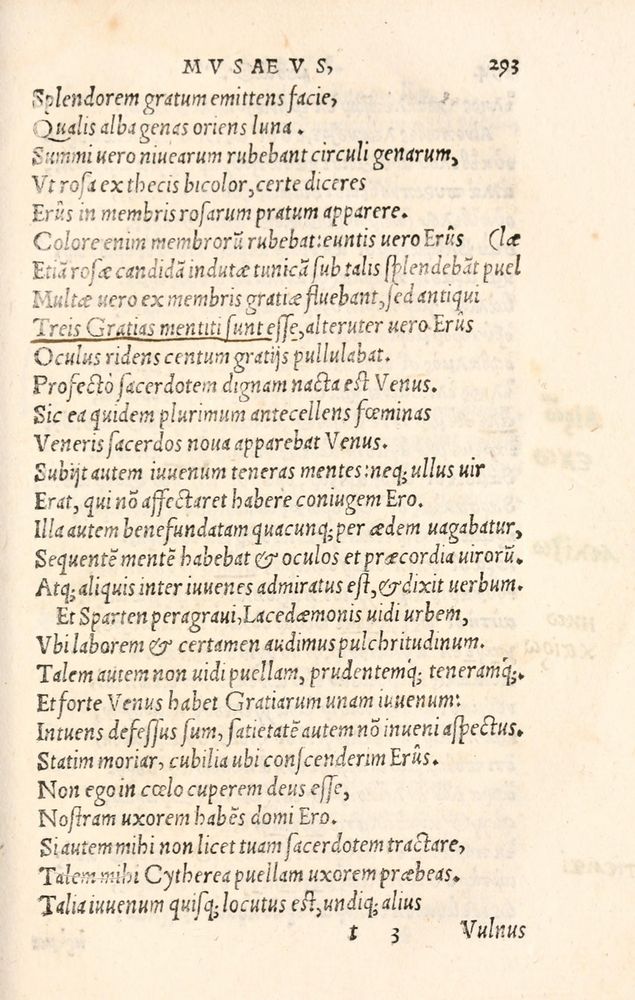 MVSAEVS, 293
Splendorem gratum emittens facie,
Qualis alba genas oriens luna.
Summi uero niuearum rubebant circuli genarum,
Vt rosa ex thecis bicolor, certe diceres
Erûs in membris rosarum pratum apparere.
Colore enim membrorũ rubebat: euntis uero Erûs (læ
Etiã rosæ candidã indutæ tunicã sub talis splendebãt puel
Multæ uero ex membris gratiæ fluebant, sed antiqui
Treis Gratias mentiti sunt esse, alteruter uero Erûs
Oculus ridens centum gratijs pullulabat.
Profectò sacerdotem dignam nacta est Venus.
Sic ea quidem plurimum antecellens fœminas
Veneris sacerdos noua apparebat Venus.
Subijt autem iuuenum teneras mentes: neq; ullus uir
Erat, qui nõ affectaret habere coniugem Ero.
Illa autem benefundatam quacunq; per ædem uagabatur,
Sequentẽ mentẽ habebat & oculos et præcordia uirorũ.
Atq; aliquis inter iuuenes admiratus est, & dixit uerbum.
Et Sparten peragraui, Lacedæmonis uidi urbem,
Vbi laborem & certamen audimus pulchritudinum.
Talem autem non uidi puellam, prudentemq́; teneramq́;.
Et forte Venus habet Gratiarum unam iuuenum:
Intuens defessus sum, satietatẽ autem nõ inueni aspectus.
Statim moriar, cubilia ubi conscenderim Erûs.
Non ego in cœlo cuperem deus esse,
Nostram uxorem habẽs domi Ero.
Si autem mihi non licet tuam sacerdotem tractare,
Talem mihi Cytherea puellam uxorem præbeas.
Talia iuuenum quisq; locutus est, undiq; alius
t 3 Vulnus